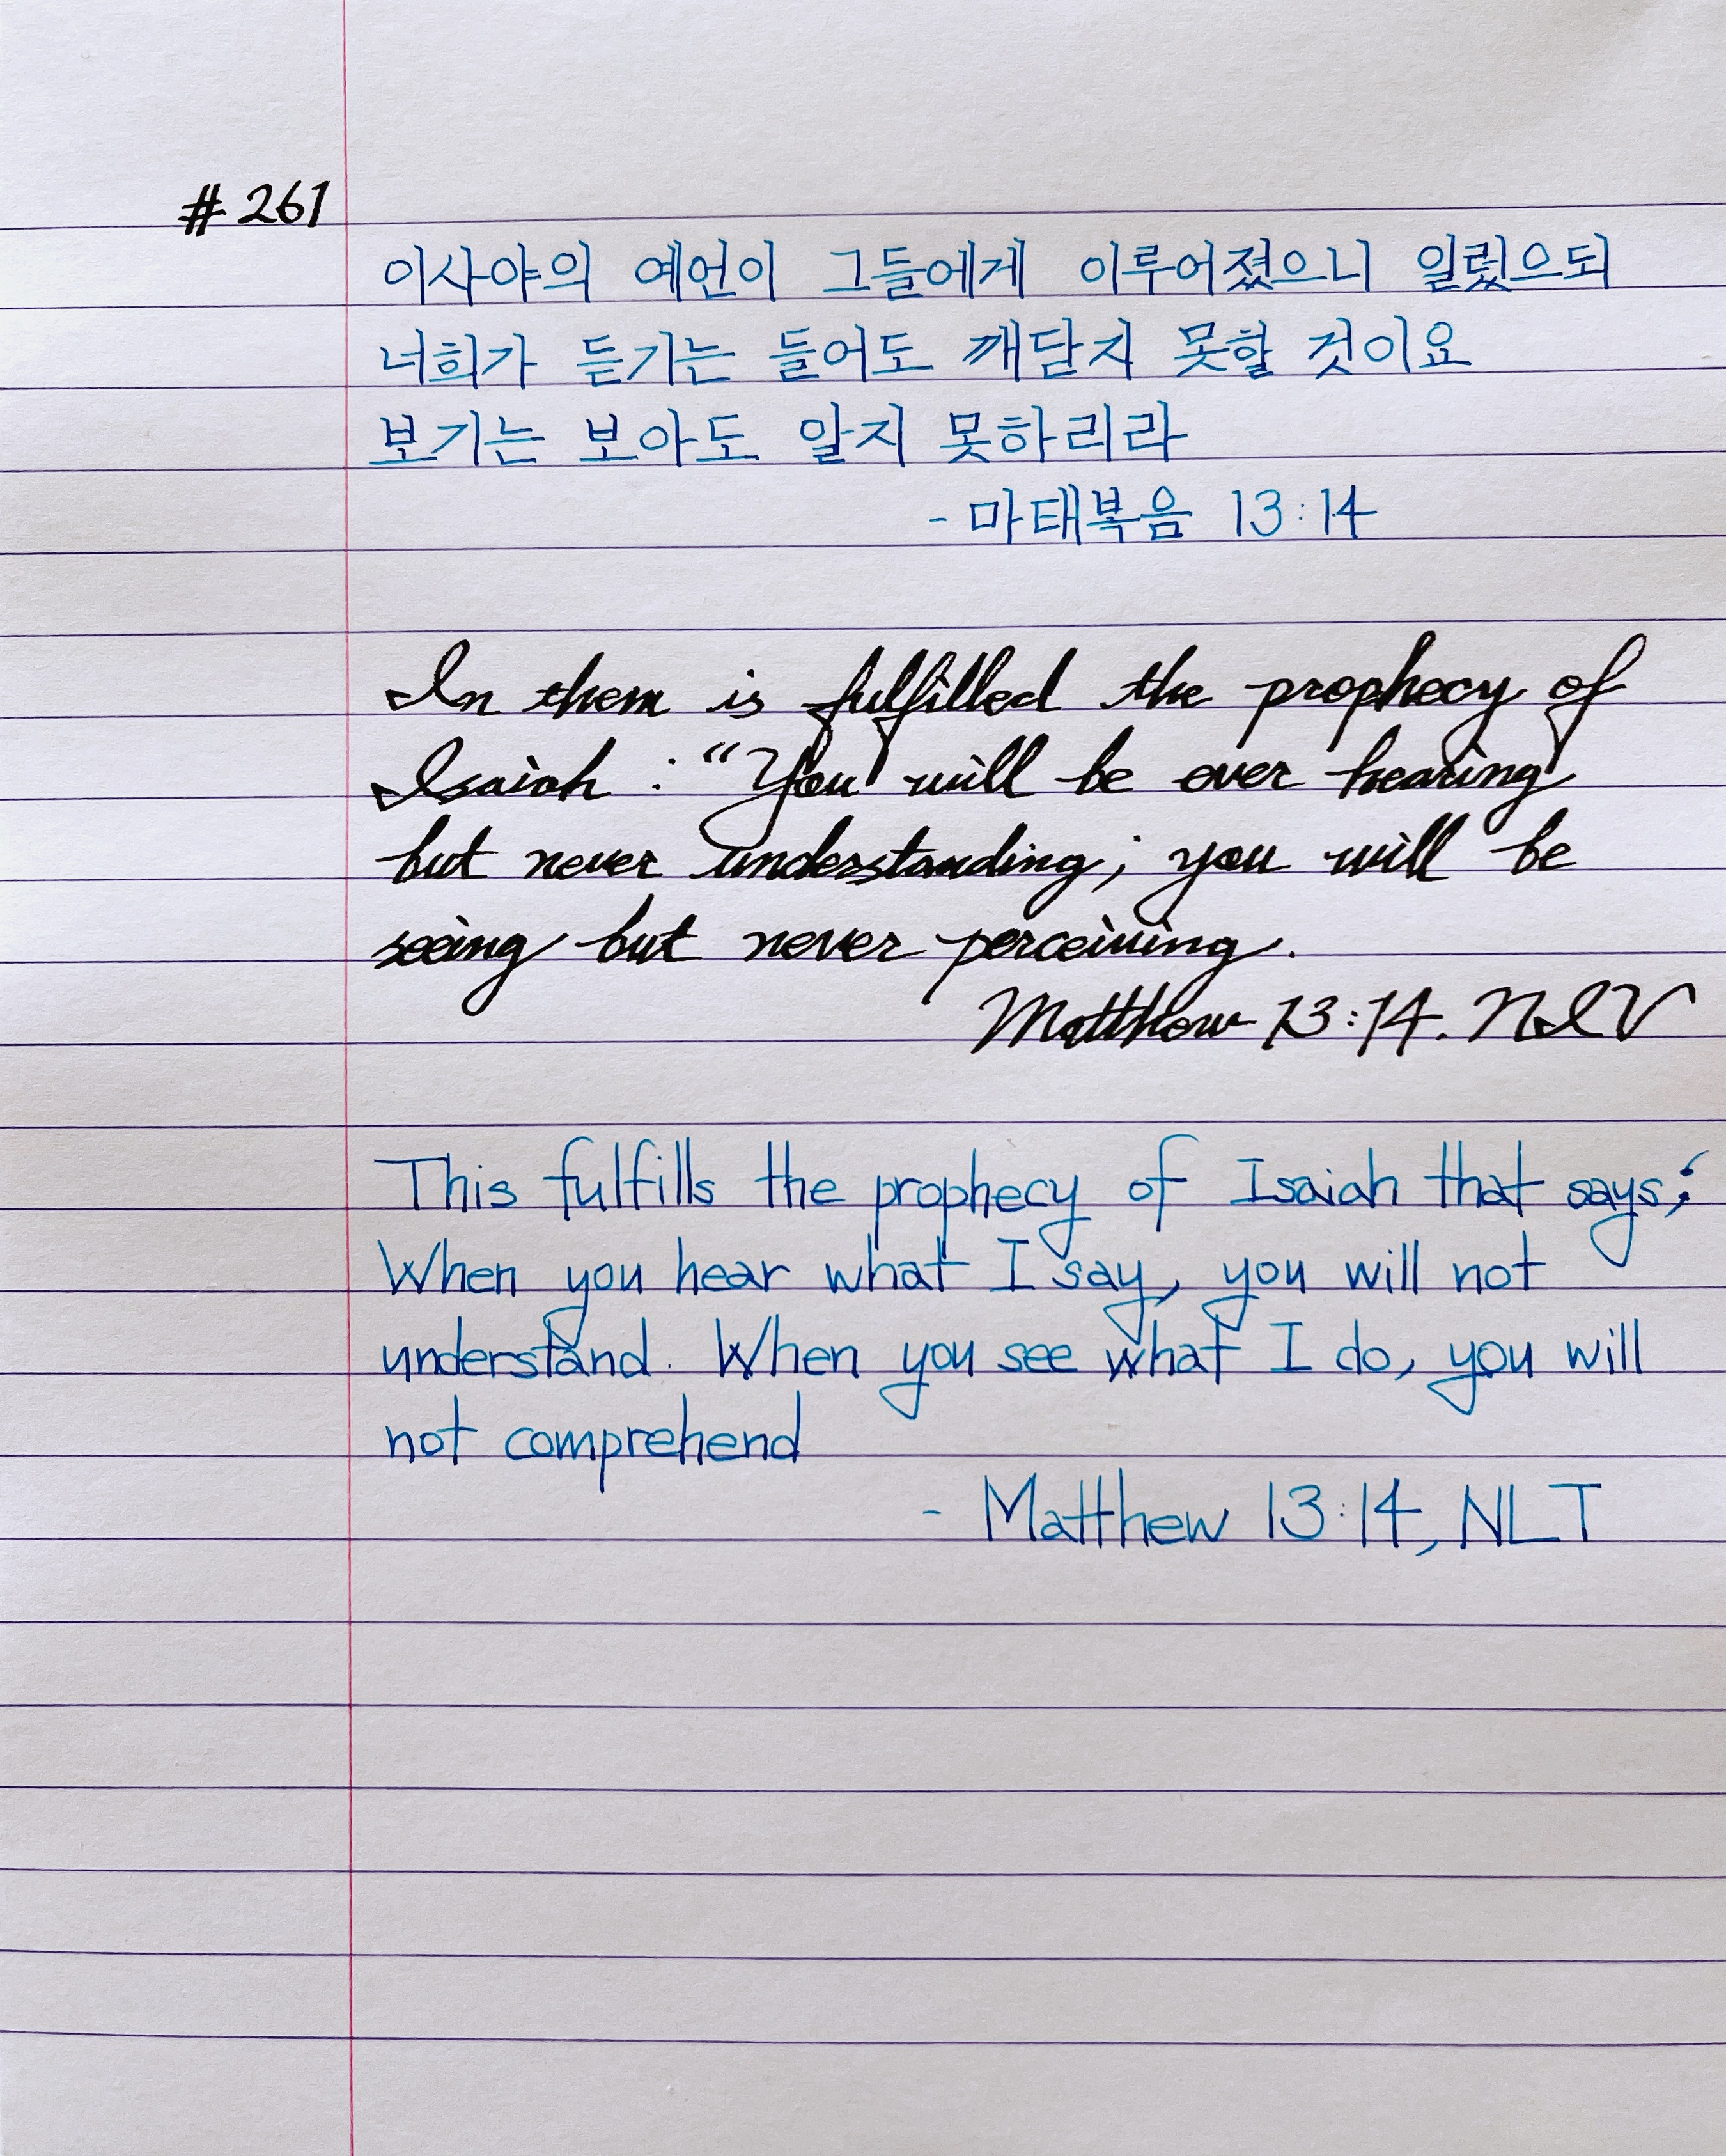 #261
이사야의 예언이 그들에게 이루어졌으니 일렀으되
너희가 듣기는 들어도 깨닫지 못할 것이요
보기는 보아도 알지 못하리라
- 마태복음 13:14
In them is fulfilled the prophecy of
Isaiah : “You will be ever hearing
but never understanding; you will be
seeing but never perceiving.
Matthew 13:14. NIV
This fulfills the prophecy of Isaiah that says;
When you hear what I say, you will not
understand. When you see what I do, you will
not comprehend
- Matthew 13:14, NLT